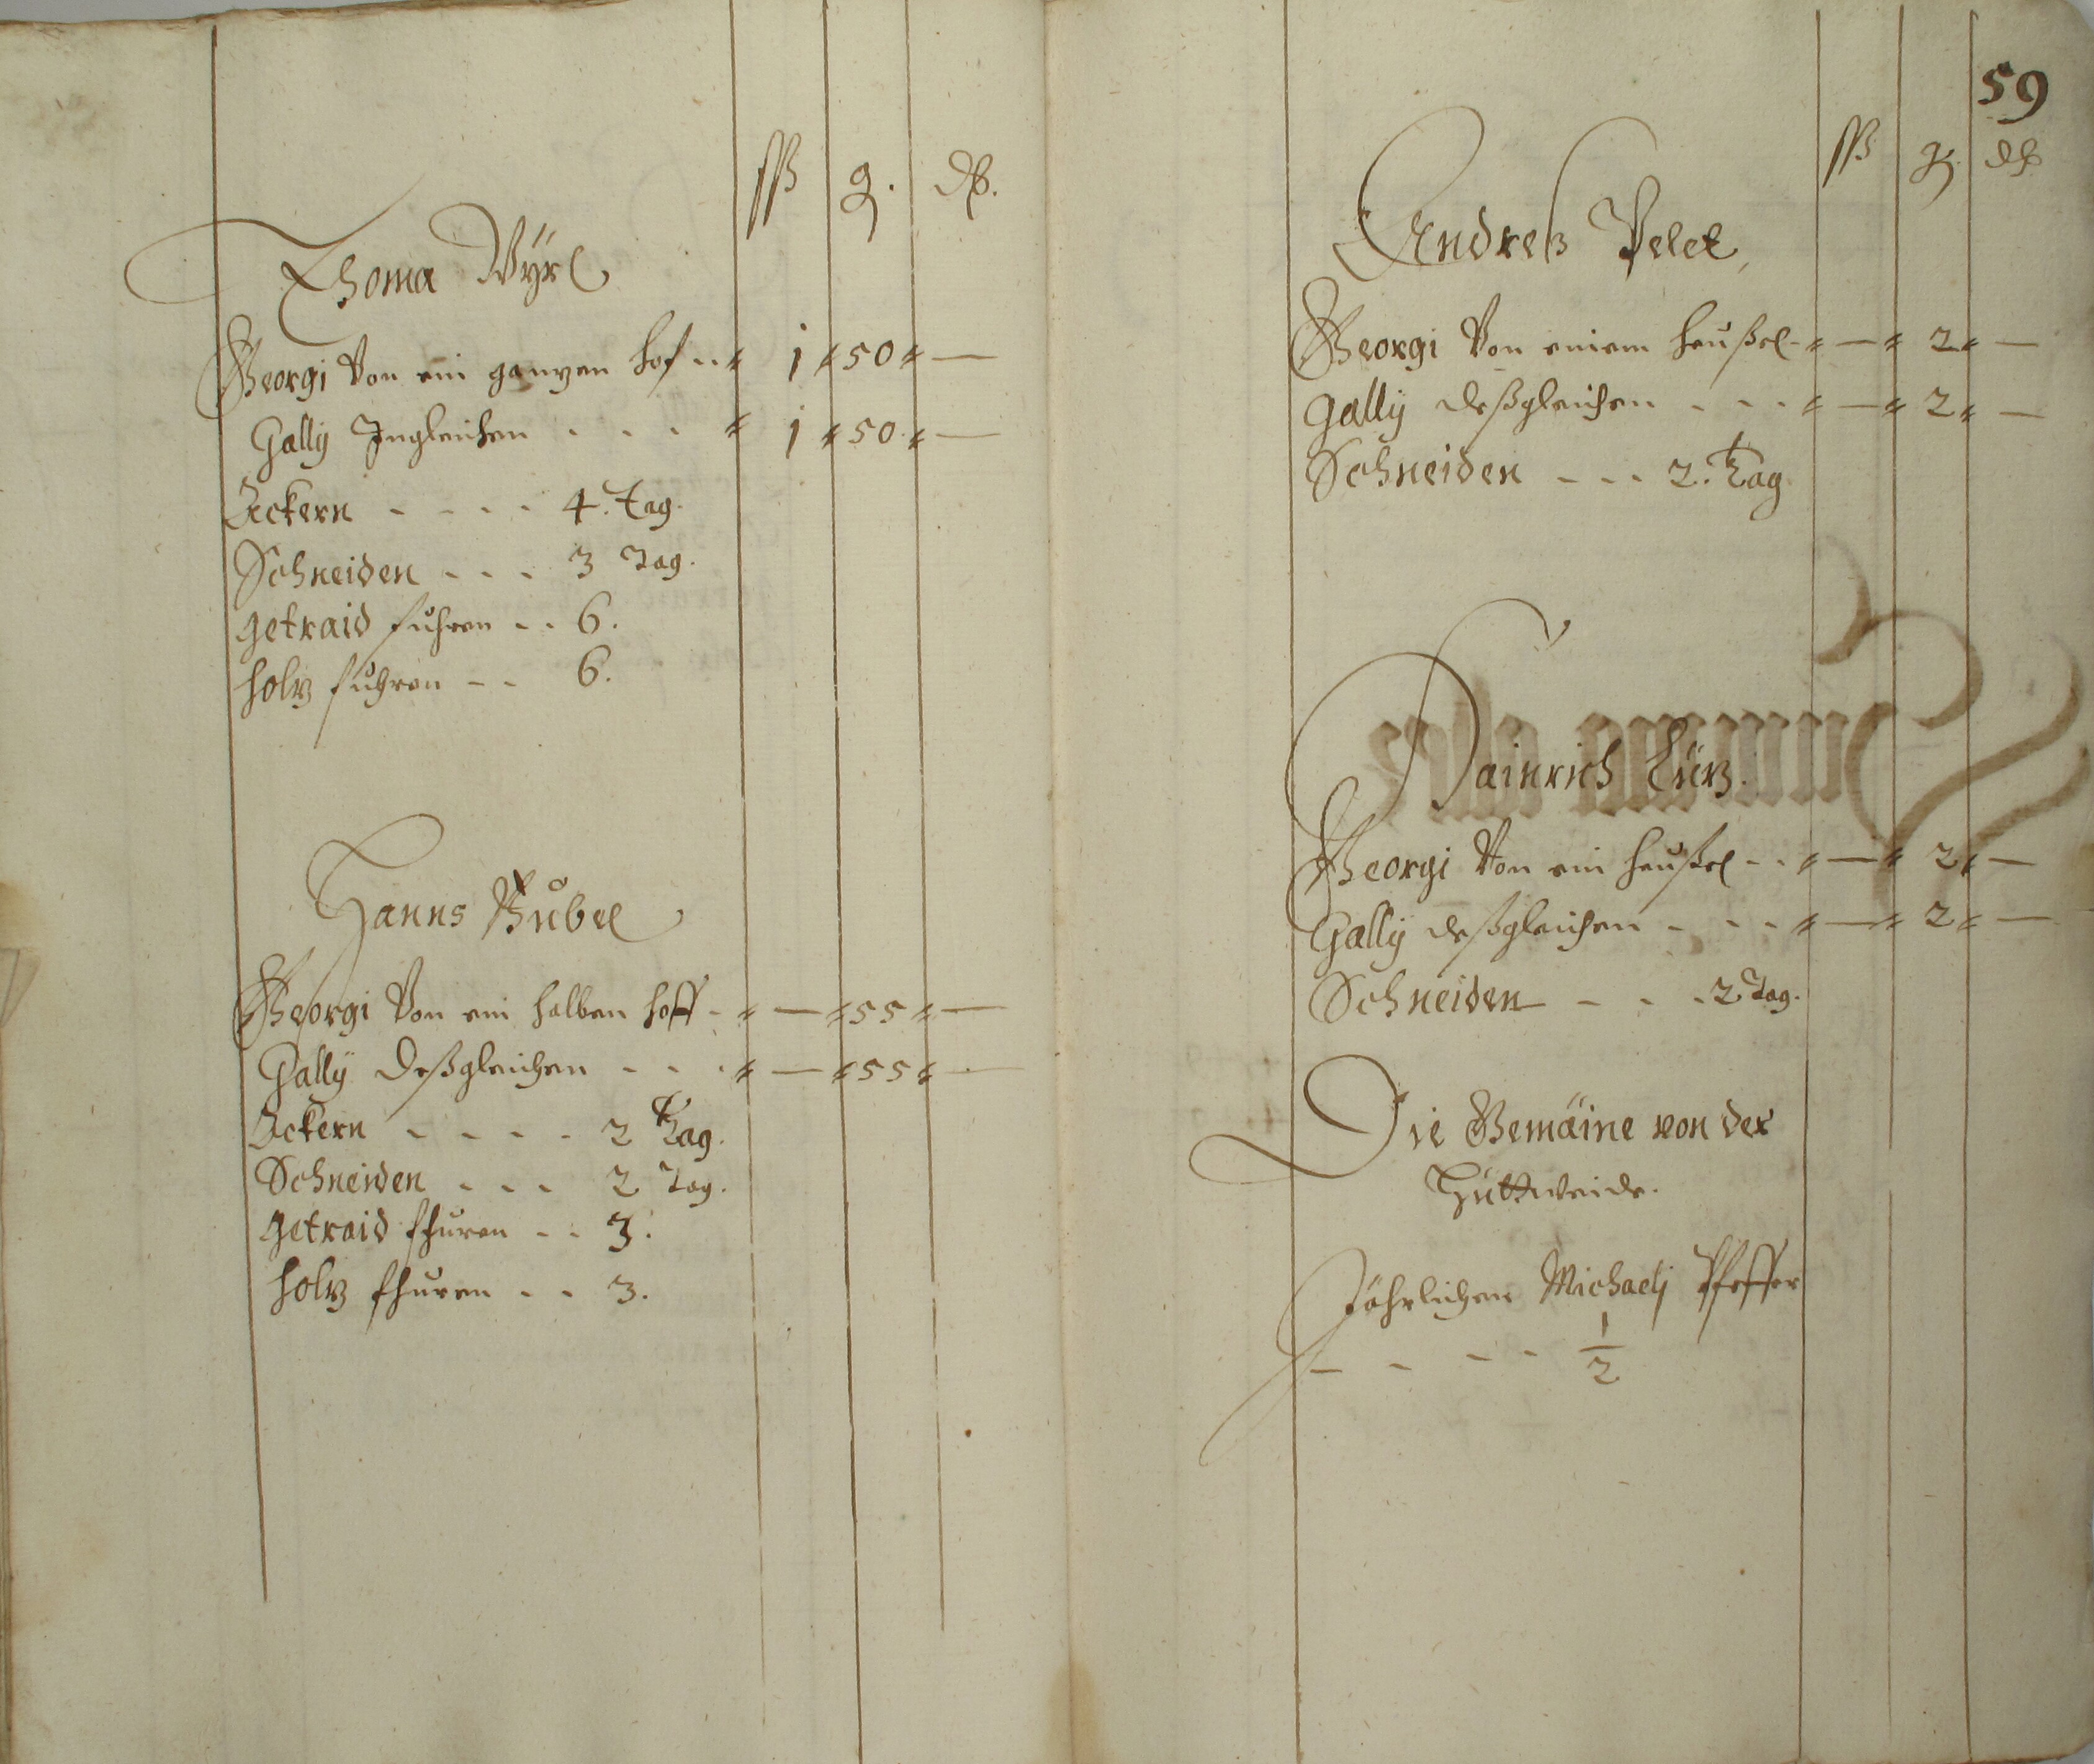 ſß g. d₰.
Thoma Wÿrl
Georgi Von ein ganzen hof 1 50 —
Gallÿ Ingleichen - - - 1 50 —
Ackern - - - - 4. Tag.
Schneiden - - - 3 Tag.
getraid fuhren - - 6.
holz fuhren - - 6.
Hanns Bubel
Georgi Von ein halben hoff - — 55 —
Gallÿ deßgleichen - - - — 55 —
Ackern - - - - 2 Tag.
Schneiden - - - 2 Tag.
getraid fhuren - - 3.
holz fhuren - - 3.
59
ſß g d₰
Andreß Pelet
Georgi Von einem heußel - — 2 —
gallÿ deßgleichen - - - — 2 —
Schneiden - - - 2. Tag
Hainrich
Georgi Von ein heußel - - — 2 —
Gallÿ deßgleichen - - - — 2 —
Schneiden - - - 2 Tag.
Die Gemäine von der
Huttweide.
Jährlichen Michaelj Pfeffer
- - - - 1/2